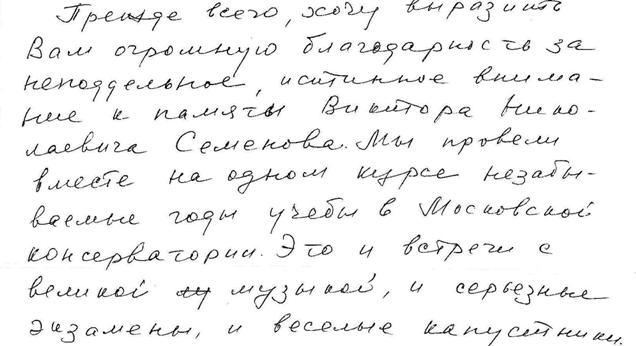 Прежде всего, хочу выразить
Вам огромную благодарность за
неподдельное, истинное внима-
ние к памяти Виктора Нико-
лаевича Семенова. Мы провели
вместе на одном курсе незабы-
ваемые годы учебы в Московской
консерватории. Это и встречи с
великой музыкой, и серьезные
экзамены, и веселые капустники.